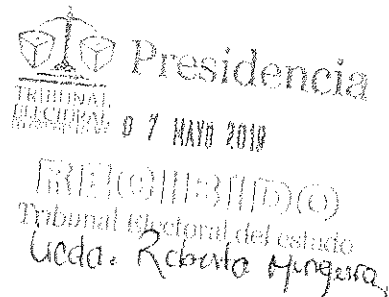 Presidencia
TRIBUNAL
ELECTORAL
07 MAYO 2019
RECIBIDO
Tribunal Electoral del estado
Licda. Roberta